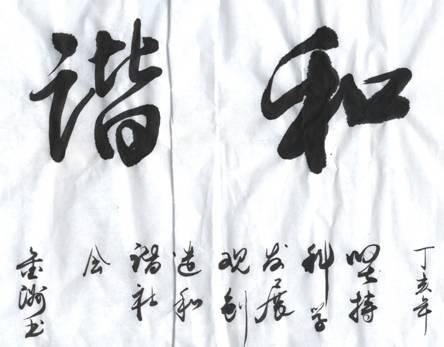 和谐
丁亥年
坚持
科学
发展
观创
造和
谐社
会
金湖书